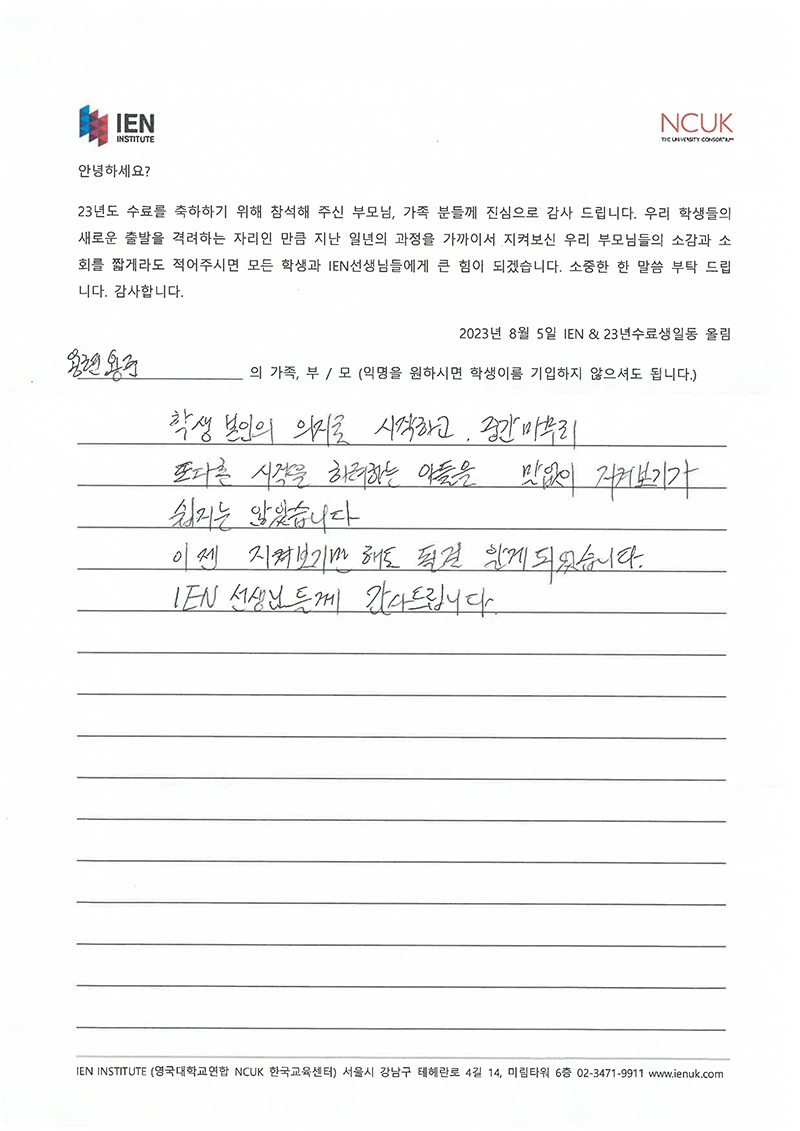 IEN
INSTITUTE
NCUK
THE UNIVERSITY CONSORTIUM
안녕하세요?
23년도 수료를 축하하기 위해 참석해 주신 부모님, 가족 분들께 진심으로 감사 드립니다. 우리 학생들의
새로운 출발을 격려하는 자리인 만큼 지난 일년의 과정을 가까이서 지켜보신 우리 부모님들의 소감과 소
회를 짧게라도 적어주시면 모든 학생과 IEN선생님들에게 큰 힘이 되겠습니다. 소중한 한 말씀 부탁 드립
니다. 감사합니다.
2023년 8월 5일 IEN & 23년수료생일동 올림
의 가족, 부 / 모 (익명을 원하시면 학생이름을 기입하지 않으셔도 됩니다.)
학생 본인의 의지로 시작하고. 중간마무리
또다른 시작을 하려하는 아들을 지켜보기가
쉽지는 않았습니다
이젠 지켜보기만 해도 될걸 알게되었습니다.
IEN 선생님들께 감사드립니다.
IEN INSTITUTE (영국대학교연합 NCUK 한국교육센터) 서울시 강남구 테헤란로 4길 14, 미림타워 6층 02-3471-9911 www.ienuk.com